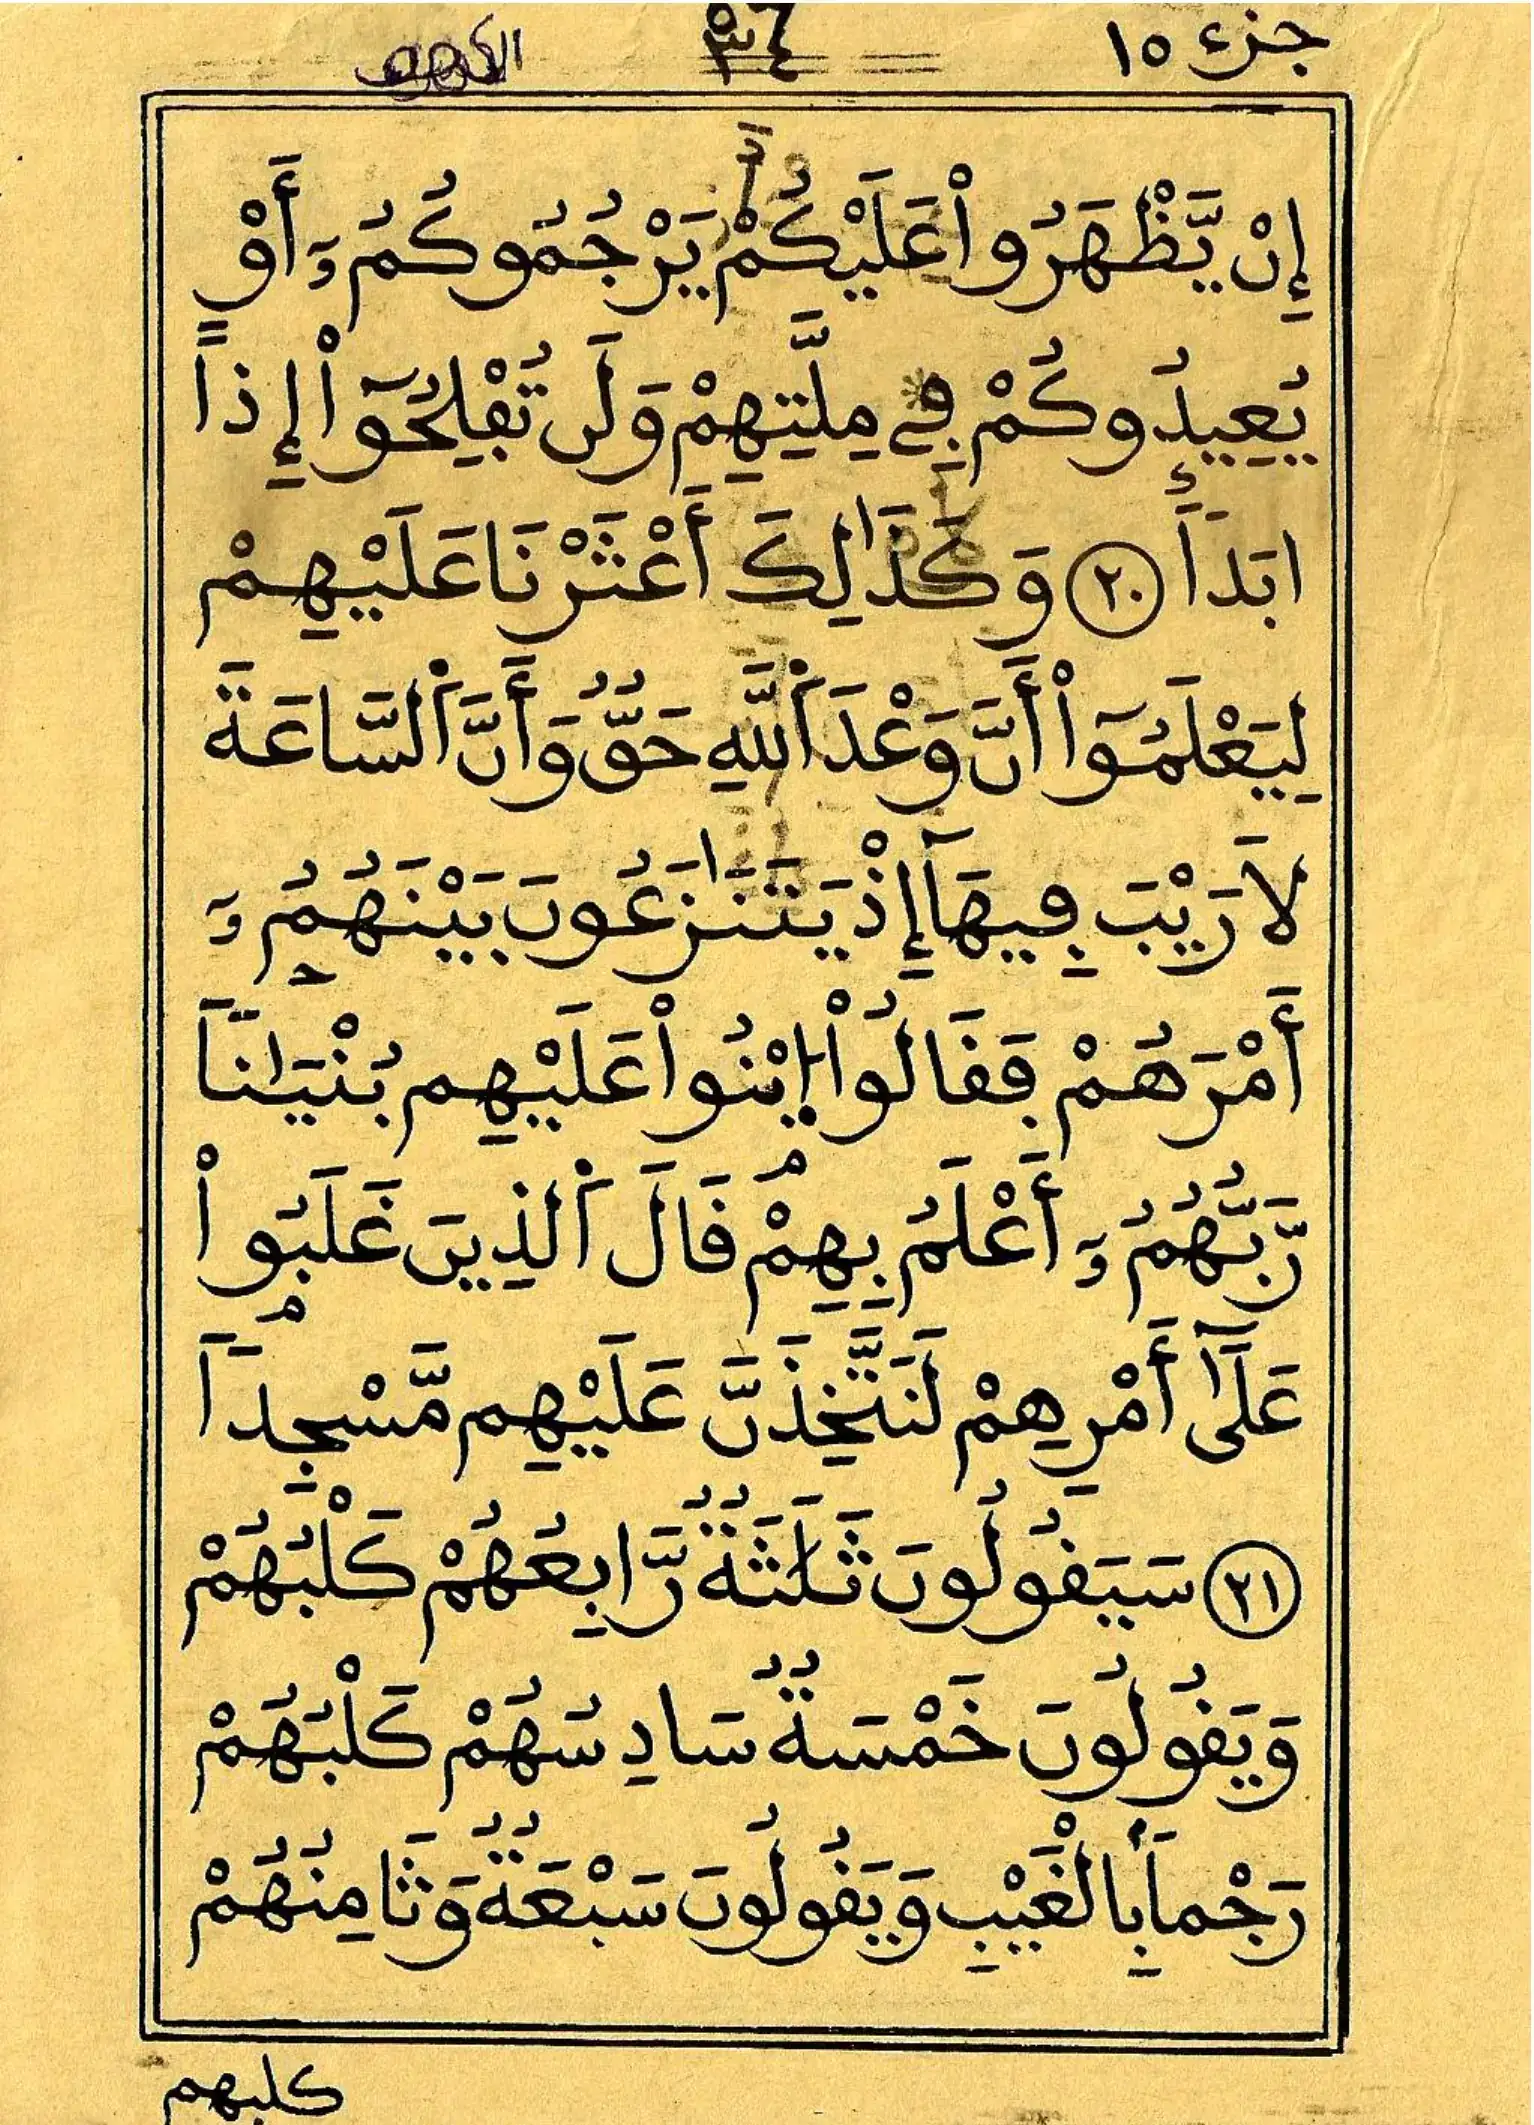 جزء ١٥
إِنْ يَّظْهَرُواْ عَلَيْكُمْ يَرْجُمُوكُمُۥٓ أَوْ
يُعِيدُوكُمْ فِے مِلَّتِهِمْ وَلَن تُفْلِحُوٓاْ إِذاً
اَبَداً ٢٠ وَكَذَٰلِكَ أَعْثَرْنَا عَلَيْهِمْ
لِيَعْلَمُوٓاْ أَنَّ وَعْدَ ٱللَّهِ حَقٌّ وَأَنَّ ٱلسَّاعَةَ
لَا رَيْبَ فِيهَآ إِذْ يَتَنَٰزَعُونَ بَيْنَهُمُۥٓ
أَمْرَهُمْ فَقَالُواْ اِبْنُواْ عَلَيْهِم بُنْيَٰناً
رَّبُّهُمُۥٓ أَعْلَمُ بِهِمْ قَالَ ٱلَّذِينَ غَلَبُواْ
عَلَىٰٓ أَمْرِهِمْ لَنَتَّخِذَنَّ عَلَيْهِم مَّسْجِداً
٢١ سَيَقُولُونَ ثَلَٰثَةٌ رَّابِعُهُمْ كَلْبُهُمْ
وَيَقُولُونَ خَمْسَةٌ سَادِسُهُمْ كَلْبُهُمْ
رَجْماً بِالْغَيْبِ وَيَقُولُونَ سَبْعَةٌ وَثَامِنُهُمْ
كلبهم